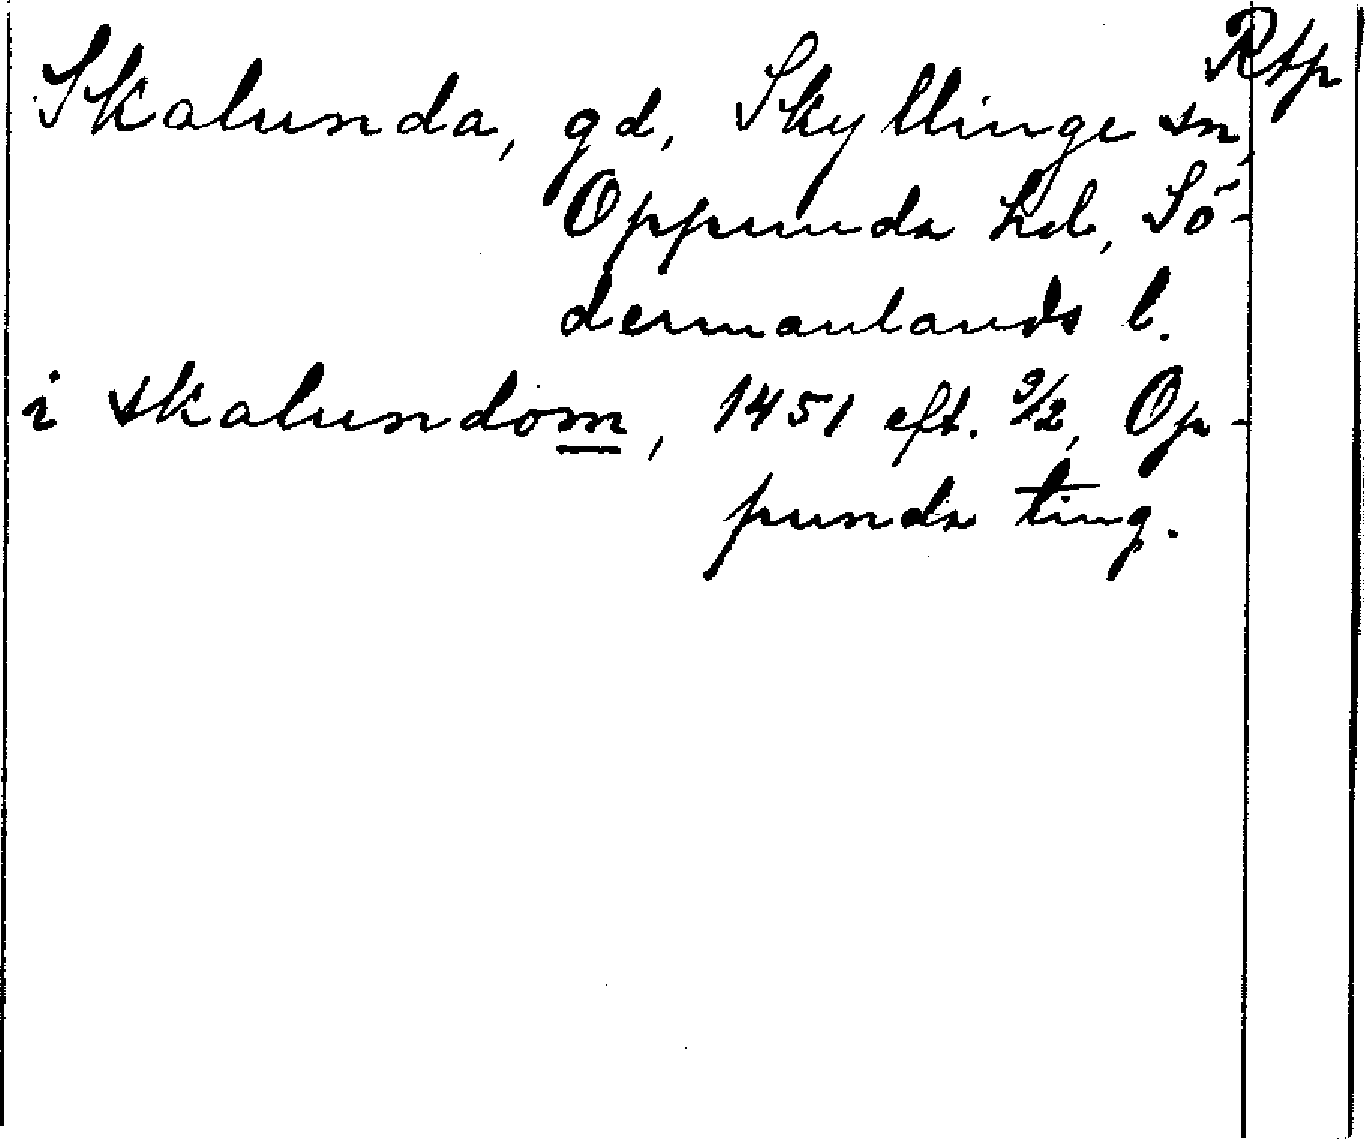 Rtp
Skalunda, gd, Skyllinge sn,
Oppunda hd, Sö-
dermanlands l.
i skalundom, 1451 eft. 9/2, Op-
punda ting.